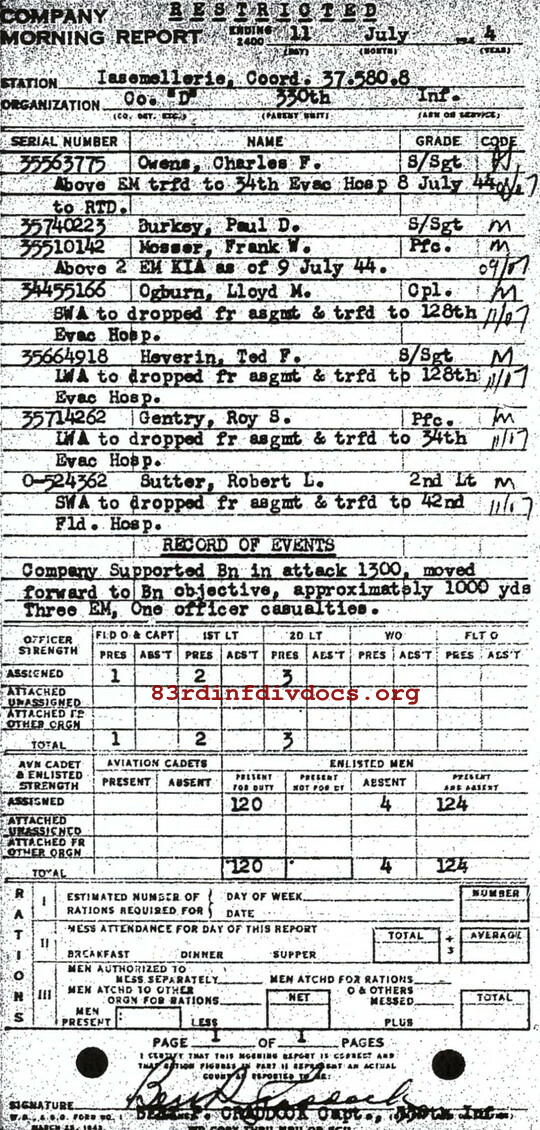 COMPANY
RESTRICTED
MORNING REPORT ENDING 2400 11 July 4
(DAY) (MONTH) (YEAR)
STATION Iasemellerie, Coord. 37.580.8
ORGANIZATION Co. "D" 330th Inf.
(CO. DET. ETC.) (PARENT UNIT) (ARM OR SERVICE)
SERIAL NUMBER NAME GRADE CODE
35563775 Owens, Charles F. S/Sgt
Above EM trfd to 34th Evac Hosp 8 July 44
to RTD.
35740223 Burkey, Paul D. S/Sgt M
35510142 Mosser, Frank W. Pfc. M
Above 2 EM KIA as of 9 July 44. 09/07
34455166 Ogburn, Lloyd M. Cpl. M
SWA to dropped fr asgmt & trfd to 128th 11/07
Evac Hosp.
35664918 Heverin, Ted F. S/Sgt M
LWA to dropped fr asgmt & trfd to 128th 11/07
Evac Hosp.
35714262 Gentry, Roy S. Pfc. M
LWA to dropped fr asgmt & trfd to 34th 11/07
Evac Hosp.
O-524362 Sutter, Robert L. 2nd Lt M
SWA to dropped fr asgmt & trfd to 42nd 11/07
Fld. Hosp.
RECORD OF EVENTS
Company Supported Bn in attack 1300, moved
forward to Bn objective, approximately 1000 yds
Three EM, One officer casualties.
OFFICER STRENGTH FLD O & CAPT 1ST LT 2D LT W O FLT O
PRES ABS'T PRES ABS'T PRES ABS'T PRES ABS'T PRES ABS'T
ASSIGNED 1 2 3
ATTACHED UNASSIGNED
83rdinfdivdocs.org
ATTACHED FR OTHER ORGN
TOTAL 1 2 3
AVN CADET & ENLISTED STRENGTH AVIATION CADETS ENLISTED MEN
PRESENT ABSENT PRESENT FOR DUTY PRESENT NOT FOR DY ABSENT PRESENT AND ABSENT
ASSIGNED 120 4 124
ATTACHED UNASSIGNED
ATTACHED FR OTHER ORGN
TOTAL 120 4 124
RATIONS
I ESTIMATED NUMBER OF RATIONS REQUIRED FOR DAY OF WEEK DATE NUMBER
II MESS ATTENDANCE FOR DAY OF THIS REPORT TOTAL ÷ 3 AVERAGE
BREAKFAST DINNER SUPPER
III MEN AUTHORIZED TO MESS SEPARATELY MEN ATCHD FOR RATIONS
MEN ATCHD TO OTHER ORGN FOR RATIONS NET O & OTHERS MESSED TOTAL
MEN PRESENT LESS PLUS
PAGE 1 OF 1 PAGES
I CERTIFY THAT THIS MORNING REPORT IS CORRECT AND
THAT RATION FIGURES IN PART III REPRESENT AN ACTUAL
COUNT AS REPORTED TO ME:
SIGNATURE
CRADDOCK Capt., 330th Inf.
W.D., A.G.O. FORM NO. 1
MARCH 25, 1943